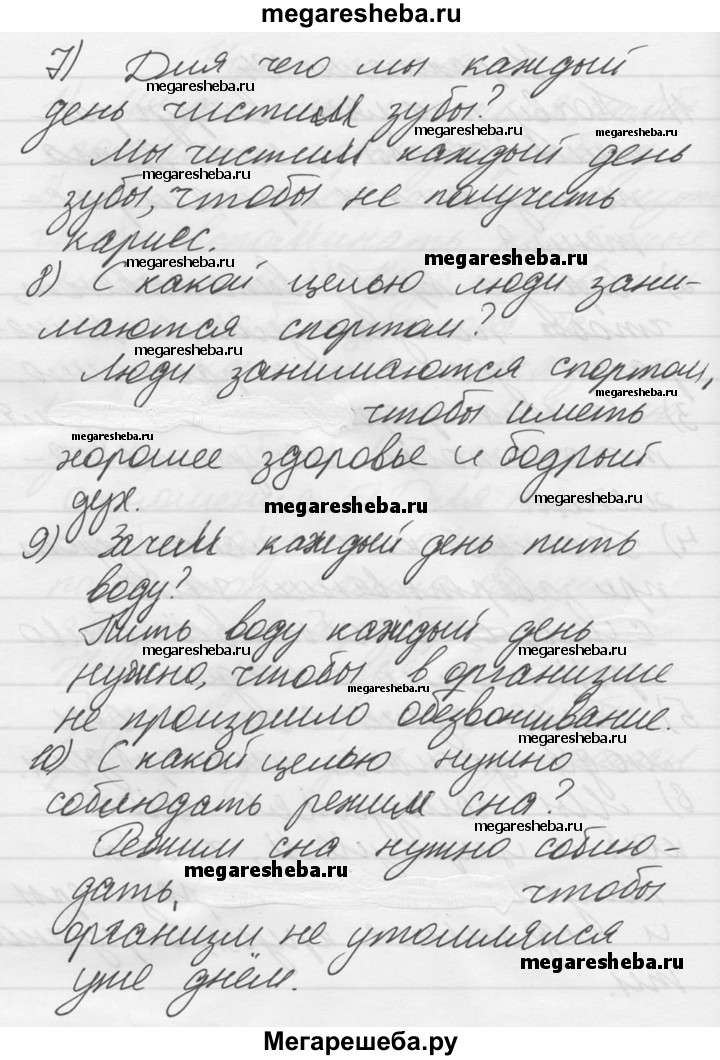 megaresheba.ru
7) Для чего мы каждый
megaresheba.ru
день чистим зубы?
megaresheba.ru
megaresheba.ru
Мы чистим каждый день
megaresheba.ru
зубы, чтобы не получить
кариес.
megaresheba.ru
megaresheba.ru
8) С какой целью люди зани-
маются спортом?
megaresheba.ru
Люди занимаются спортом,
megaresheba.ru
чтобы иметь
megaresheba.ru
хорошее здоровье и бодрый
дух.
megaresheba.ru
megaresheba.ru
9) Зачем каждый день пить
воду?
Пить воду каждый день
megaresheba.ru
megaresheba.ru
нужно, чтобы в организме
megaresheba.ru
не произошло обезвоживание.
megaresheba.ru
10) С какой целью нужно
соблюдать режим сна?
megaresheba.ru
Режим сна нужно соблю-
megaresheba.ru
дать, чтобы
организм не утомлялся
megaresheba.ru
уже днём.
Мегарешеба.ру